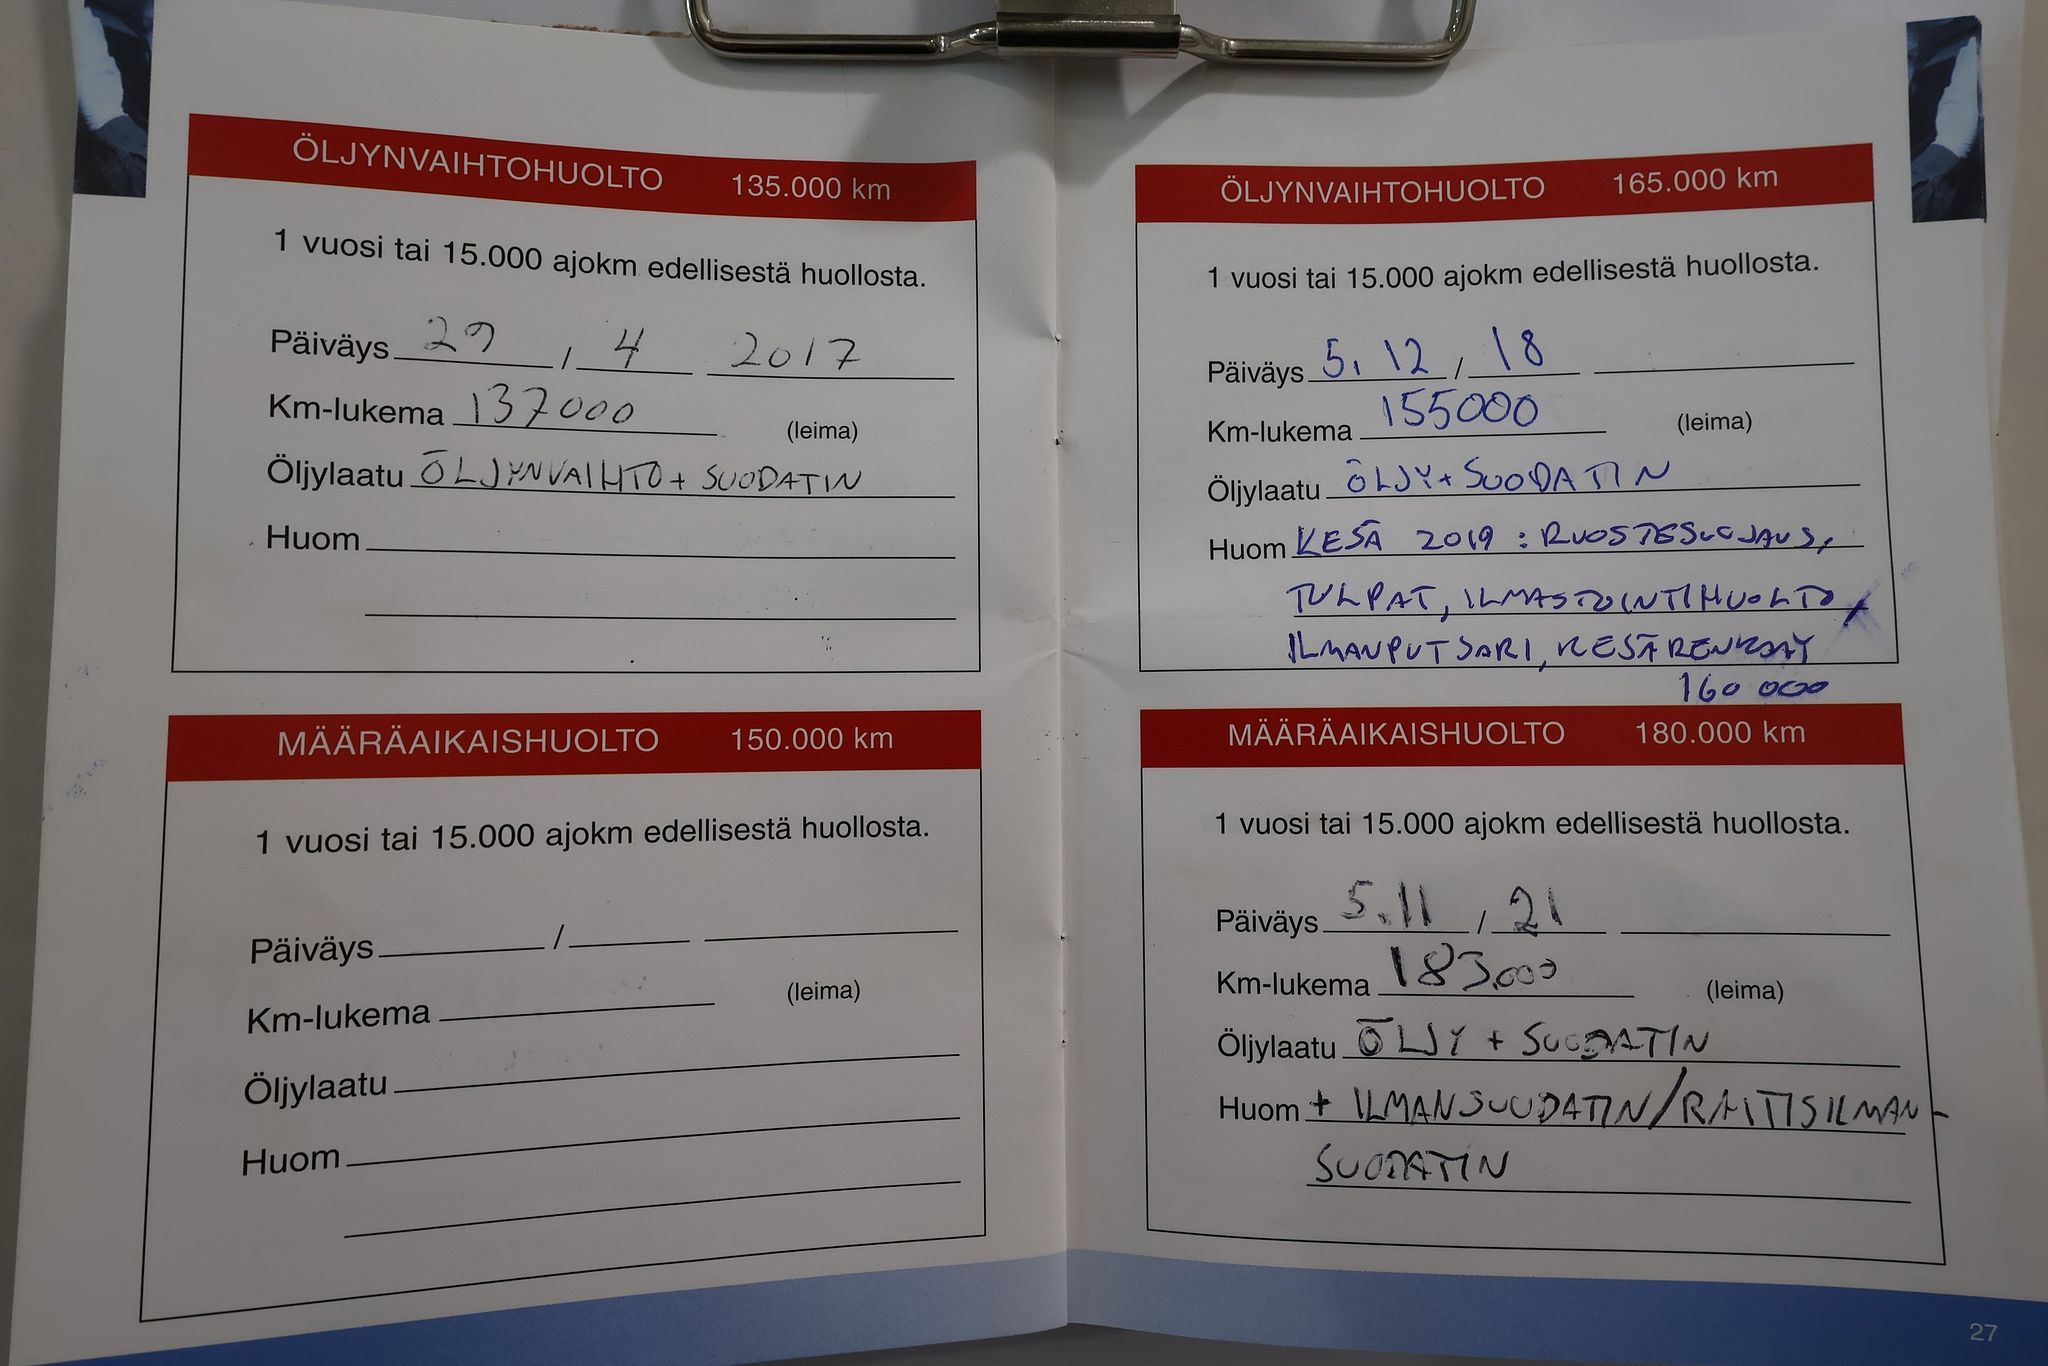 ÖLJYNVAIHTOHUOLTO 135.000 km
1 vuosi tai 15.000 ajokm edellisestä huollosta.
Päiväys 29 / 4 2017
Km-lukema 137000 (leima)
Öljylaatu ÖLJYNVAIHTO + SUODATIN
Huom
MÄÄRÄAIKAISHUOLTO 150.000 km
1 vuosi tai 15.000 ajokm edellisestä huollosta.
Päiväys /
Km-lukema (leima)
Öljylaatu
Huom
ÖLJYNVAIHTOHUOLTO 165.000 km
1 vuosi tai 15.000 ajokm edellisestä huollosta.
Päiväys 5. 12 / 18
Km-lukema 155000 (leima)
Öljylaatu ÖLJY + SUODATIN
Huom KESÄ 2019 : RUOSTESUOJAUS,
TULPAT, ILMASTOINTIHUOLTO,
ILMANPUTSARI, KESÄRENKAAT
160 000
MÄÄRÄAIKAISHUOLTO 180.000 km
1 vuosi tai 15.000 ajokm edellisestä huollosta.
Päiväys 5.11 / 21
Km-lukema 183.000 (leima)
Öljylaatu ÖLJY + SUODATIN
Huom + ILMANSUODATIN/RAITISILMAN-
SUODATIN
27